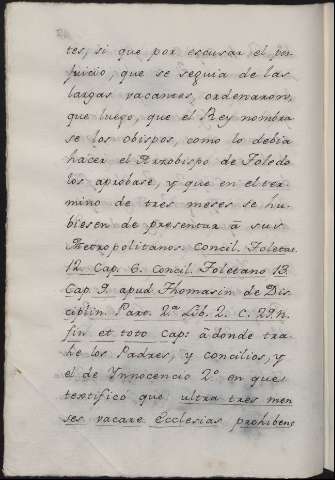 tes, si que por escusar el per
juicio, que se seguia de las
largas vacantes, ordenaron,
que luego, que el Rey nombra
se los obispos, como lo debia
hacer el Arzobispo de Toledo
los aprobase, y que en el ter
mino de tres meses se hu
biesen de presentar â sus
Metropolitanos. Concil. Toletan.
12. Cap. 6. Concil. Toletano 13.
Cap. 9. apud Thomasin de Dis
ciplin. Part. 2ª Lib. 2. C. 29. n.
fin et toto Cap: â donde tra
he los Padres, y concilios, y
el de Innocencio 2º en que
textificó que ultra tres men
ses vacare Ecclesias prohibens